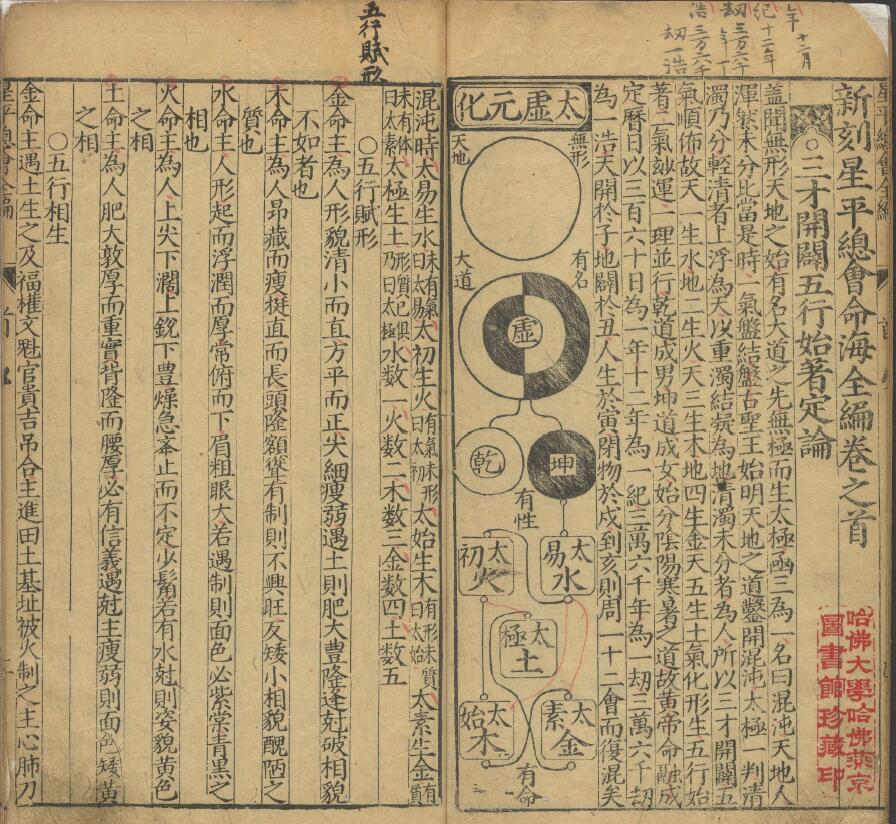 新刻星平總會命海全編卷之首
○三才開闢五行始著定論
蓋聞無形天地之始有名大道之先無極而生太極極三為一名曰混沌天地人
渾然未分比當是時一氣盤結盤古聖王始明天地之道鑿開混沌太極一判清
濁乃分輕清者上浮為天以重濁結凝為地清濁未分者為人所以三才開闢五
氣順佈故天一生水地二生火天三生木地四生金天五生土氣化形生五行始
著二氣玅運二理並行乾道成男坤道成女始分陰陽寒暑之道故黃帝命融成
定曆日以三百六十日為一年十二年為一紀三萬六千年為一劫三萬六千劫
為一浩天開於子地闢於丑人生於寅閉物於戍到亥則周一十二會而復混矣
太虛元化
無形
天地
有名
大道
虛
坤
乾
有性
太易水
太初火
太極土
太素金
太始木
有命
年十二月
紀十二年
劫三万六千年
浩三万六千劫
哈佛大學哈佛燕京
圖書館珍藏印
混沌時太易生水未有氣曰太易太初生火有氣未形曰太初太始生木有形未質曰太始太素生金質有
未有体曰太素太極生土形質已俱乃曰太極水数一火数二木数三金数四土数五
○五行賦形
金命主為人形貌清小而直方平而正尖細瘦弱遇土則肥大豊隆逢尅破相貌
不如者也
木命主為人昻藏而瘦挺直而長頭隆額聳有制則不興旺反矮小相貌醜陋之
質也
水命主人形起而浮潤而厚常俯而下眉粗眼大若遇制則面色必紫棠青黑之
相也
火命主為人上尖下濶上銳下豊燥急奉止而不定少鬚若有水尅則姿貌黃色
之相
土命主為人肥大敦厚而重實背隆而腰厚必有信義遇尅主瘦弱則面色矮黃
之相
○五行相生
金命主遇土生之及福權文魁官貴吉吊合主進田土基址被火制之主心肺刀
五行賦形
星平總會全編
首